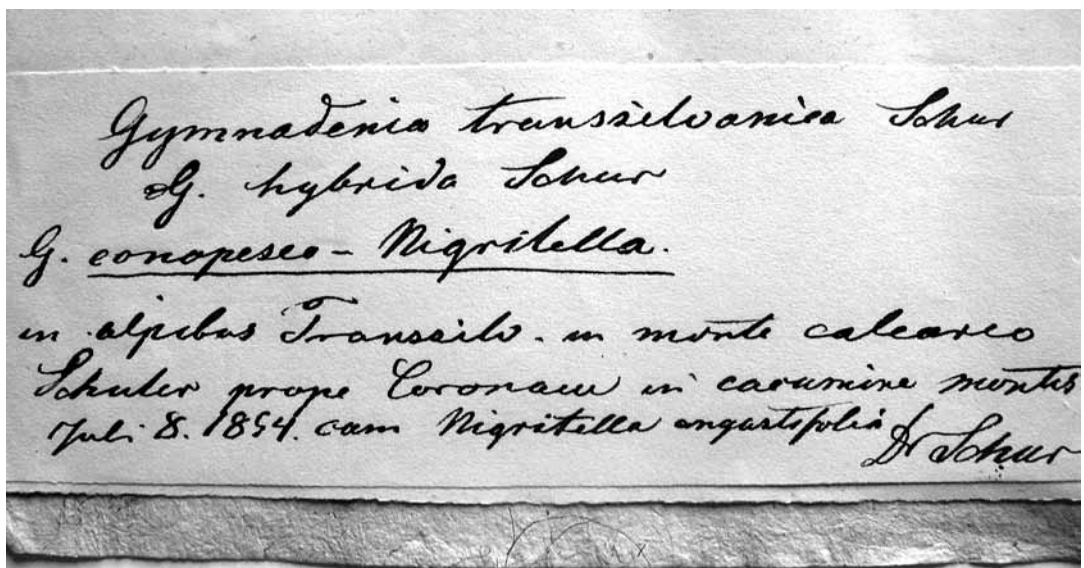 Gymnadenia transsilvanica Schur
G. hybrida Schur
G. conopseo - Nigritella.
in alpibus Transsilv. in monte calcareo
Schuler prope Coronam in cacumine montis
Juli 8. 1854. cum Nigritella angustifolia
Dr Schur